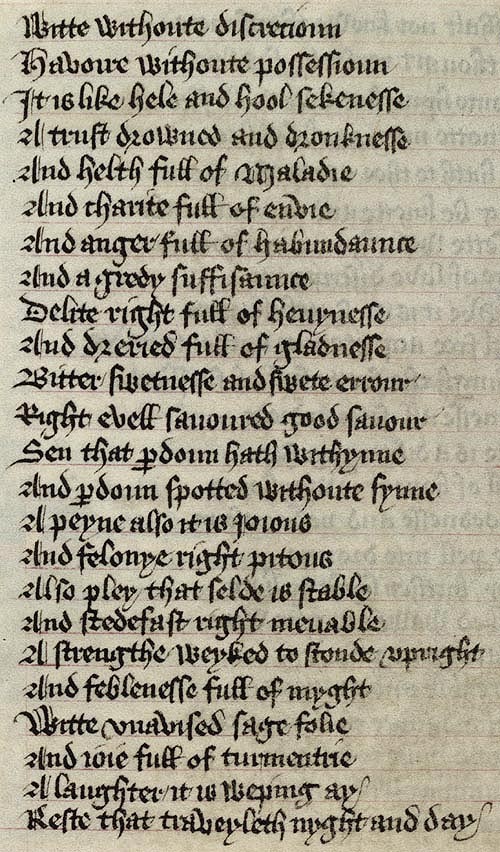 Witte withoute discrecioun
Havoire withoute possessioun
It is like hele and hool sekenesse
A trust drowned and dronknesse
And helth full of Maladie
And charite full of envie
And anger full of habundaunce
And a gredy suffisaunce
Delite right full of heuynesse
And dreried full of gladnesse
Bitter swetnesse and swete errour
Right evell sauoured good sauour
Sen that ꝑdoun hath withynne
And ꝑdoun spotted withoute synne
A peyne also it is ioious
And felonye right pitous
Also pley that selde is stable
And stedefast right meuable
A strengthe weyked to stonde vpright
And feblenesse full of myght
Witte vnavised sage folie
And ioie full of turmentrie
A laughter it is weping ay
Reste that traveyleth nyght and day